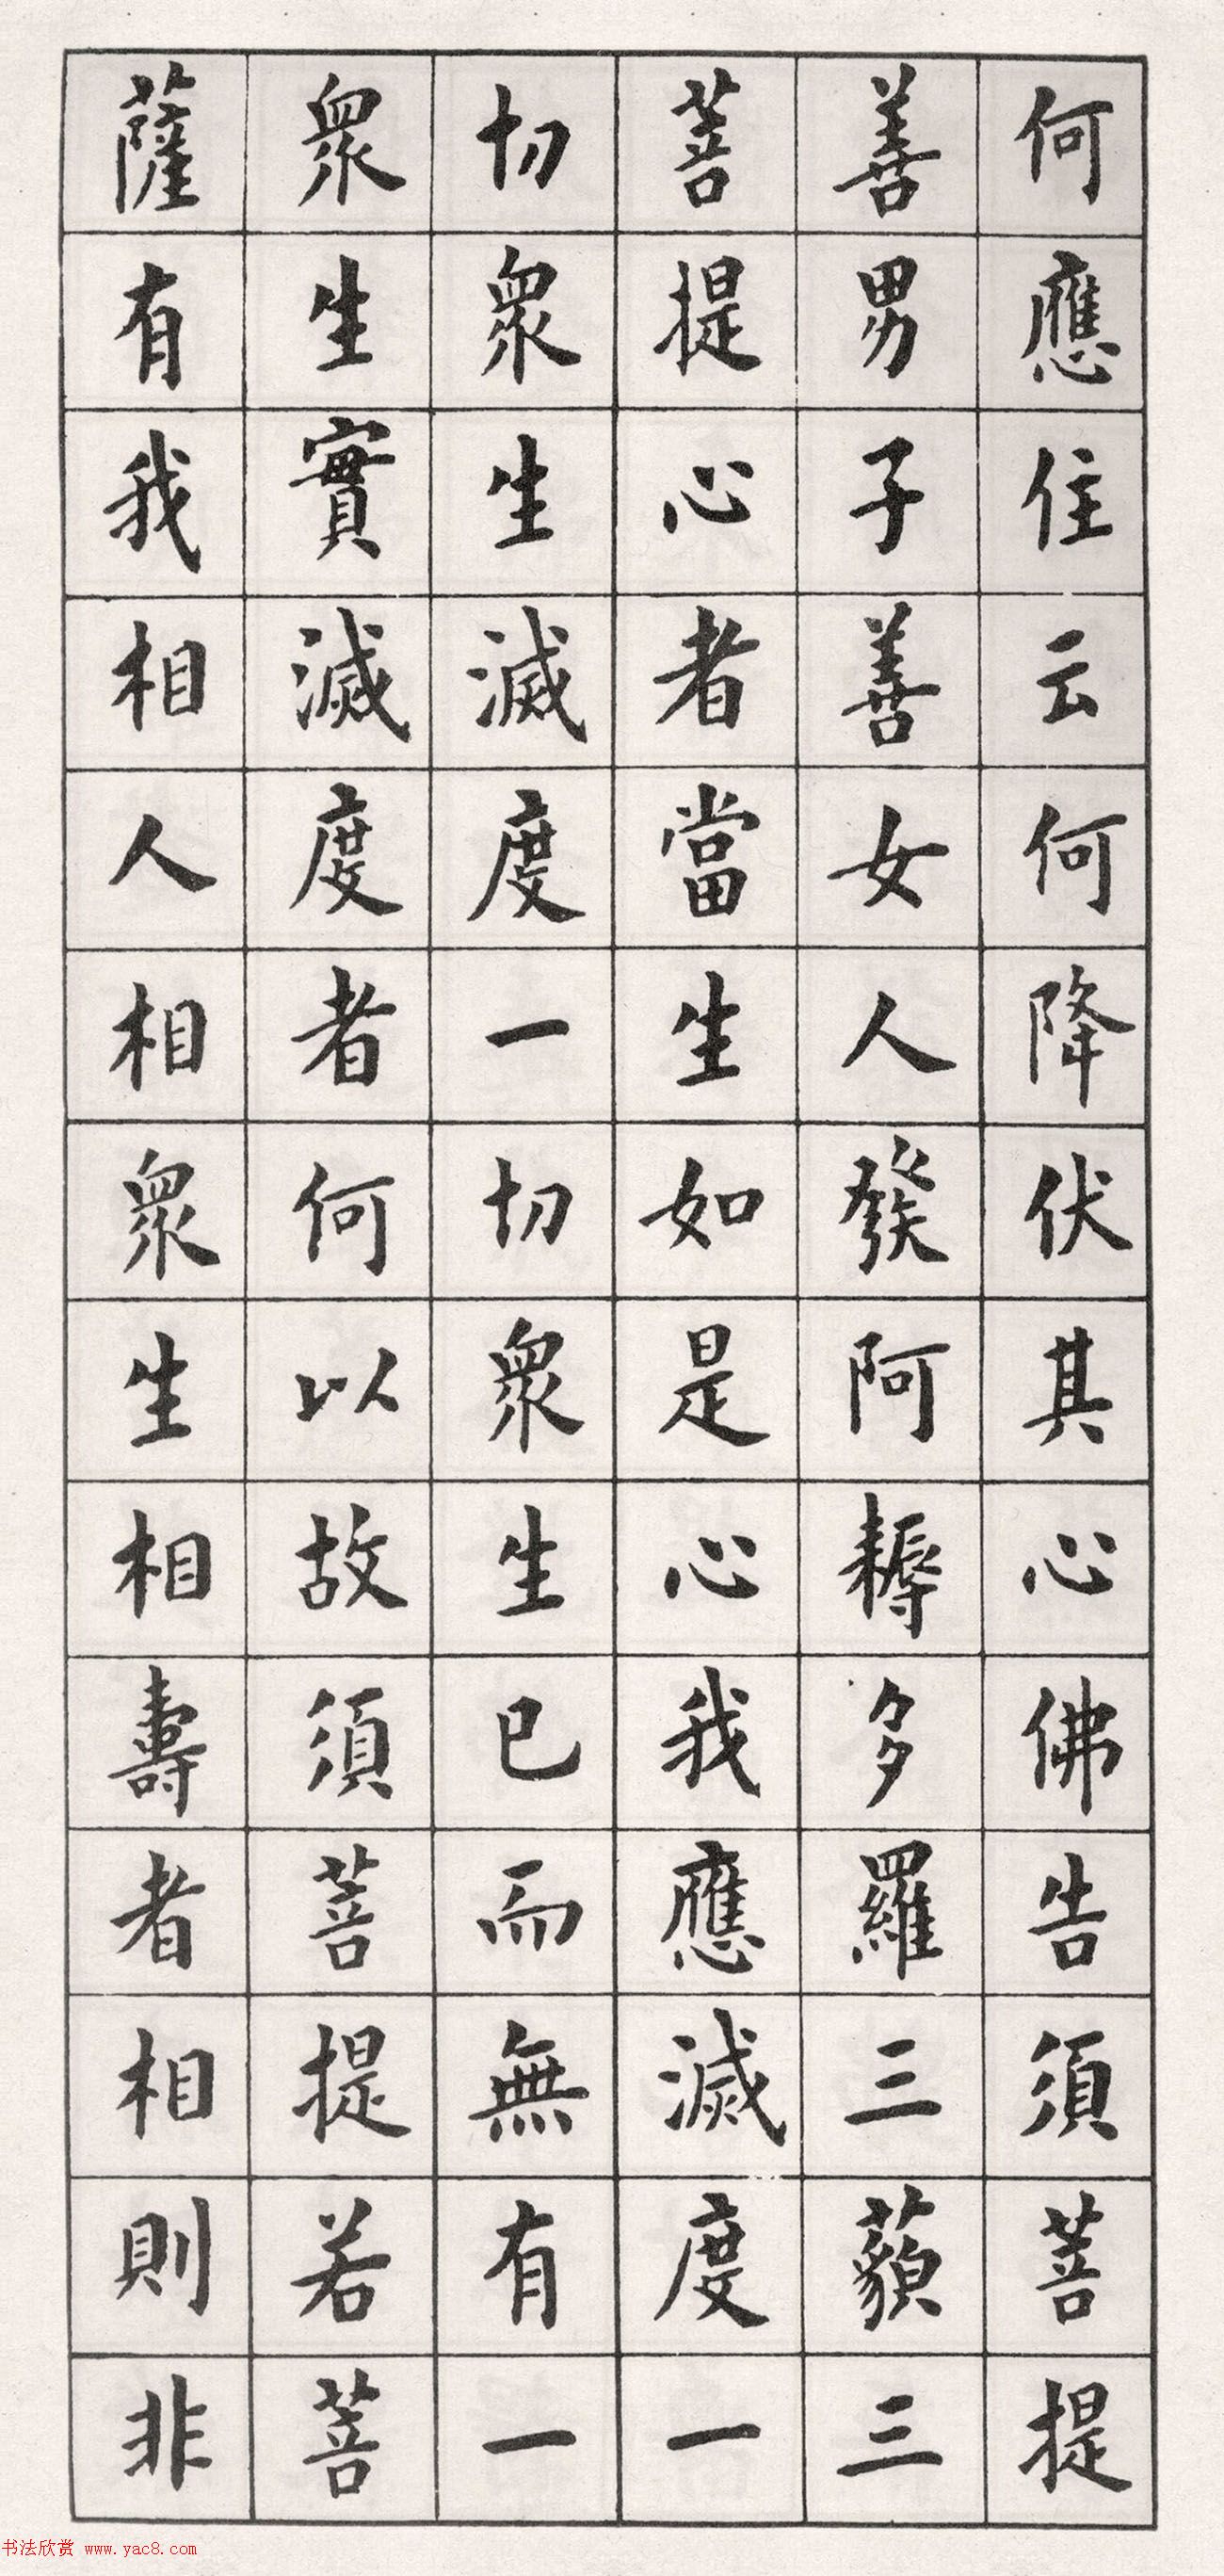 何應住云何降伏其心佛告須菩提
善男子善女人發阿耨多羅三藐三
菩提心者當生如是心我應滅度一
切眾生滅度一切眾生已而無有一
眾生實滅度者何以故須菩提若菩
薩有我相人相眾生相壽者相則非
书法欣赏 www.yac8.com